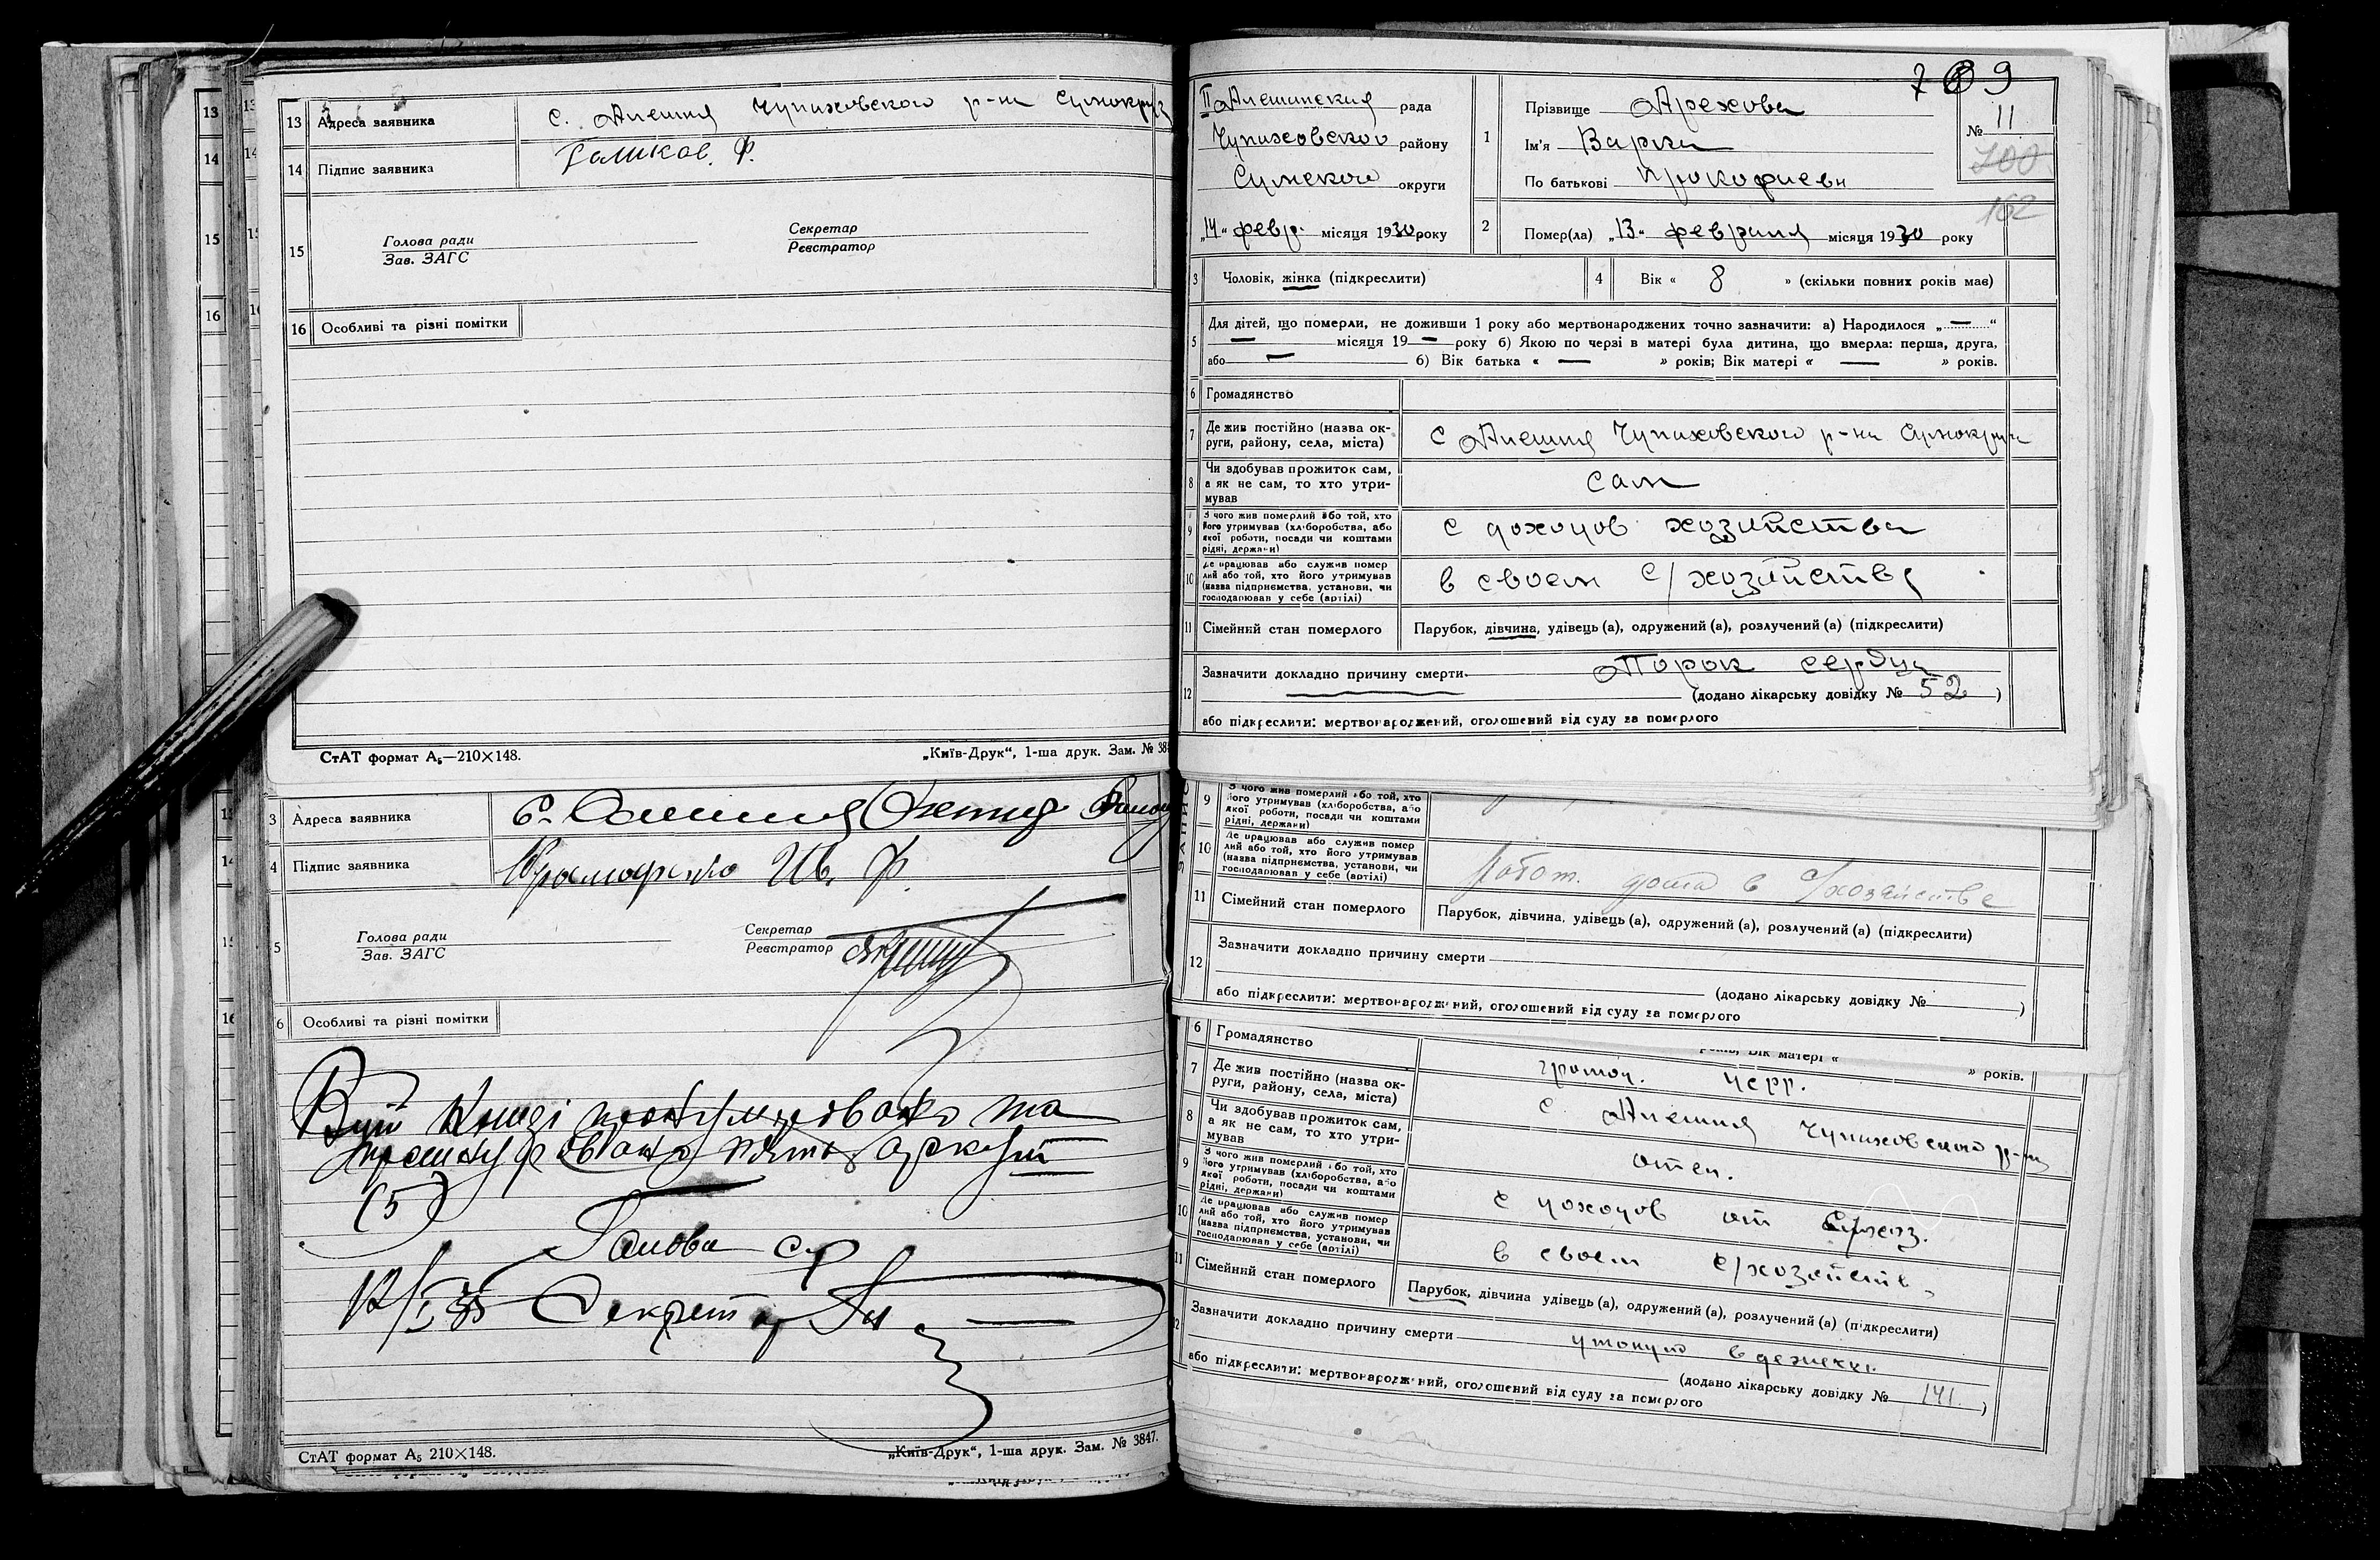 13
14
15
16
13 Адреса заявника с. Алешня Чупаховского р-на Сумокруга
14 Підпис заявника Ф.
15 Голова ради Секретар
Зав. ЗАГС Реєстратор
16 Особливі та різні помітки
СтАТ формат А5—210×148. „Київ-Друк“, 1-ша друк. Зам. № 38
3 Адреса заявника
4 Підпис заявника Ив. Ф.
5 Голова ради Секретар
Зав. ЗАГС Реєстратор
6 Особливі та різні помітки
книзі пронумеровано та
прошнуровано аркуш
(5)
Голова с/р
Секретар
СтАТ формат А5 210×148. „Київ-Друк“, 1-ша друк. Зам. № 3847.
709
ІІ Алешинский рада
Чупаховского району
Сумского округи
„14“ февр. місяця 1930 року
1 Прізвище Орехова
Ім'я Варка
По батькові Прокофиевн
№ 11
700
162
2 Помер(ла) „13“ февраля місяця 1930 року
3 Чоловік, жінка (підкреслити) 4 Вік « 8 » (скільки повних років має)
5 Для дітей, що померли, не доживши 1 року або мертвонароджених точно зазначити: а) Народилося „—“
— місяця 19— року б) Якою по черзі в матері була дитина, що вмерла: перша, друга,
або — б) Вік батька « — » років; Вік матері « — » років.
6 Громадянство
7 Де жив постійно (назва ок-
руги, району, села, міста) с Алешня Чупаховского р-на Сумокруга
8 Чи здобував прожиток сам,
а як не сам, то хто утри-
мував сам
9 З чого жив померлий або той, хто
його утримував (хліборобства, або
якої роботи, посади чи коштами
рідні, держави) с доходов хозяйства
10 Де працював або служив помер
лий або той, хто його утримував
(назва підприємства, установи, чи
господарював у себе (артілі) в своем с/хозяйстве
11 Сімейний стан померлого Парубок, дівчина, удівець (а), одружений (а), розлучений (а) (підкреслити)
12 Зазначити докладно причину смерти Порок сердца
(додано лікарську довідку № 52)
або підкреслити: мертвонароджений, оголошений від суду за померлого
9 З чого жив померлий або той, хто
його утримував (хліборобства, або
якої роботи, посади чи коштами
рідні, держави)
10 Де працював або служив помер
лий або той, хто його утримував
(назва підприємства, установи, чи
господарював у себе (артілі) работ. дома в с/хозяйстве
11 Сімейний стан померлого Парубок, дівчина, удівець (а), одружений (а), розлучений (а) (підкреслити)
12 Зазначити докладно причину смерти
(додано лікарську довідку № )
або підкреслити: мертвонароджений, оголошений від суду за померлого
років; Вік матері « » років.
6 Громадянство
7 Де жив постійно (назва ок-
руги, району, села, міста) с. Алешня Чупаховского р-на
8 Чи здобував прожиток сам,
а як не сам, то хто утри-
мував отец.
9 З чого жив померлий або той, хто
його утримував (хліборобства, або
якої роботи, посади чи коштами
рідні, держави) с доходов от с/хоз.
10 Де працював або служив помер
лий або той, хто його утримував
(назва підприємства, установи, чи
господарював у себе (артілі) в своем с/хозяйств
11 Сімейний стан померлого Парубок, дівчина удівець (а), одружений (а), розлучений (а) (підкреслити)
Зазначити докладно причину смерти утонул в
(додано лікарську довідку № 141.)
або підкреслити: мертвонароджений, оголошений від суду за померлого